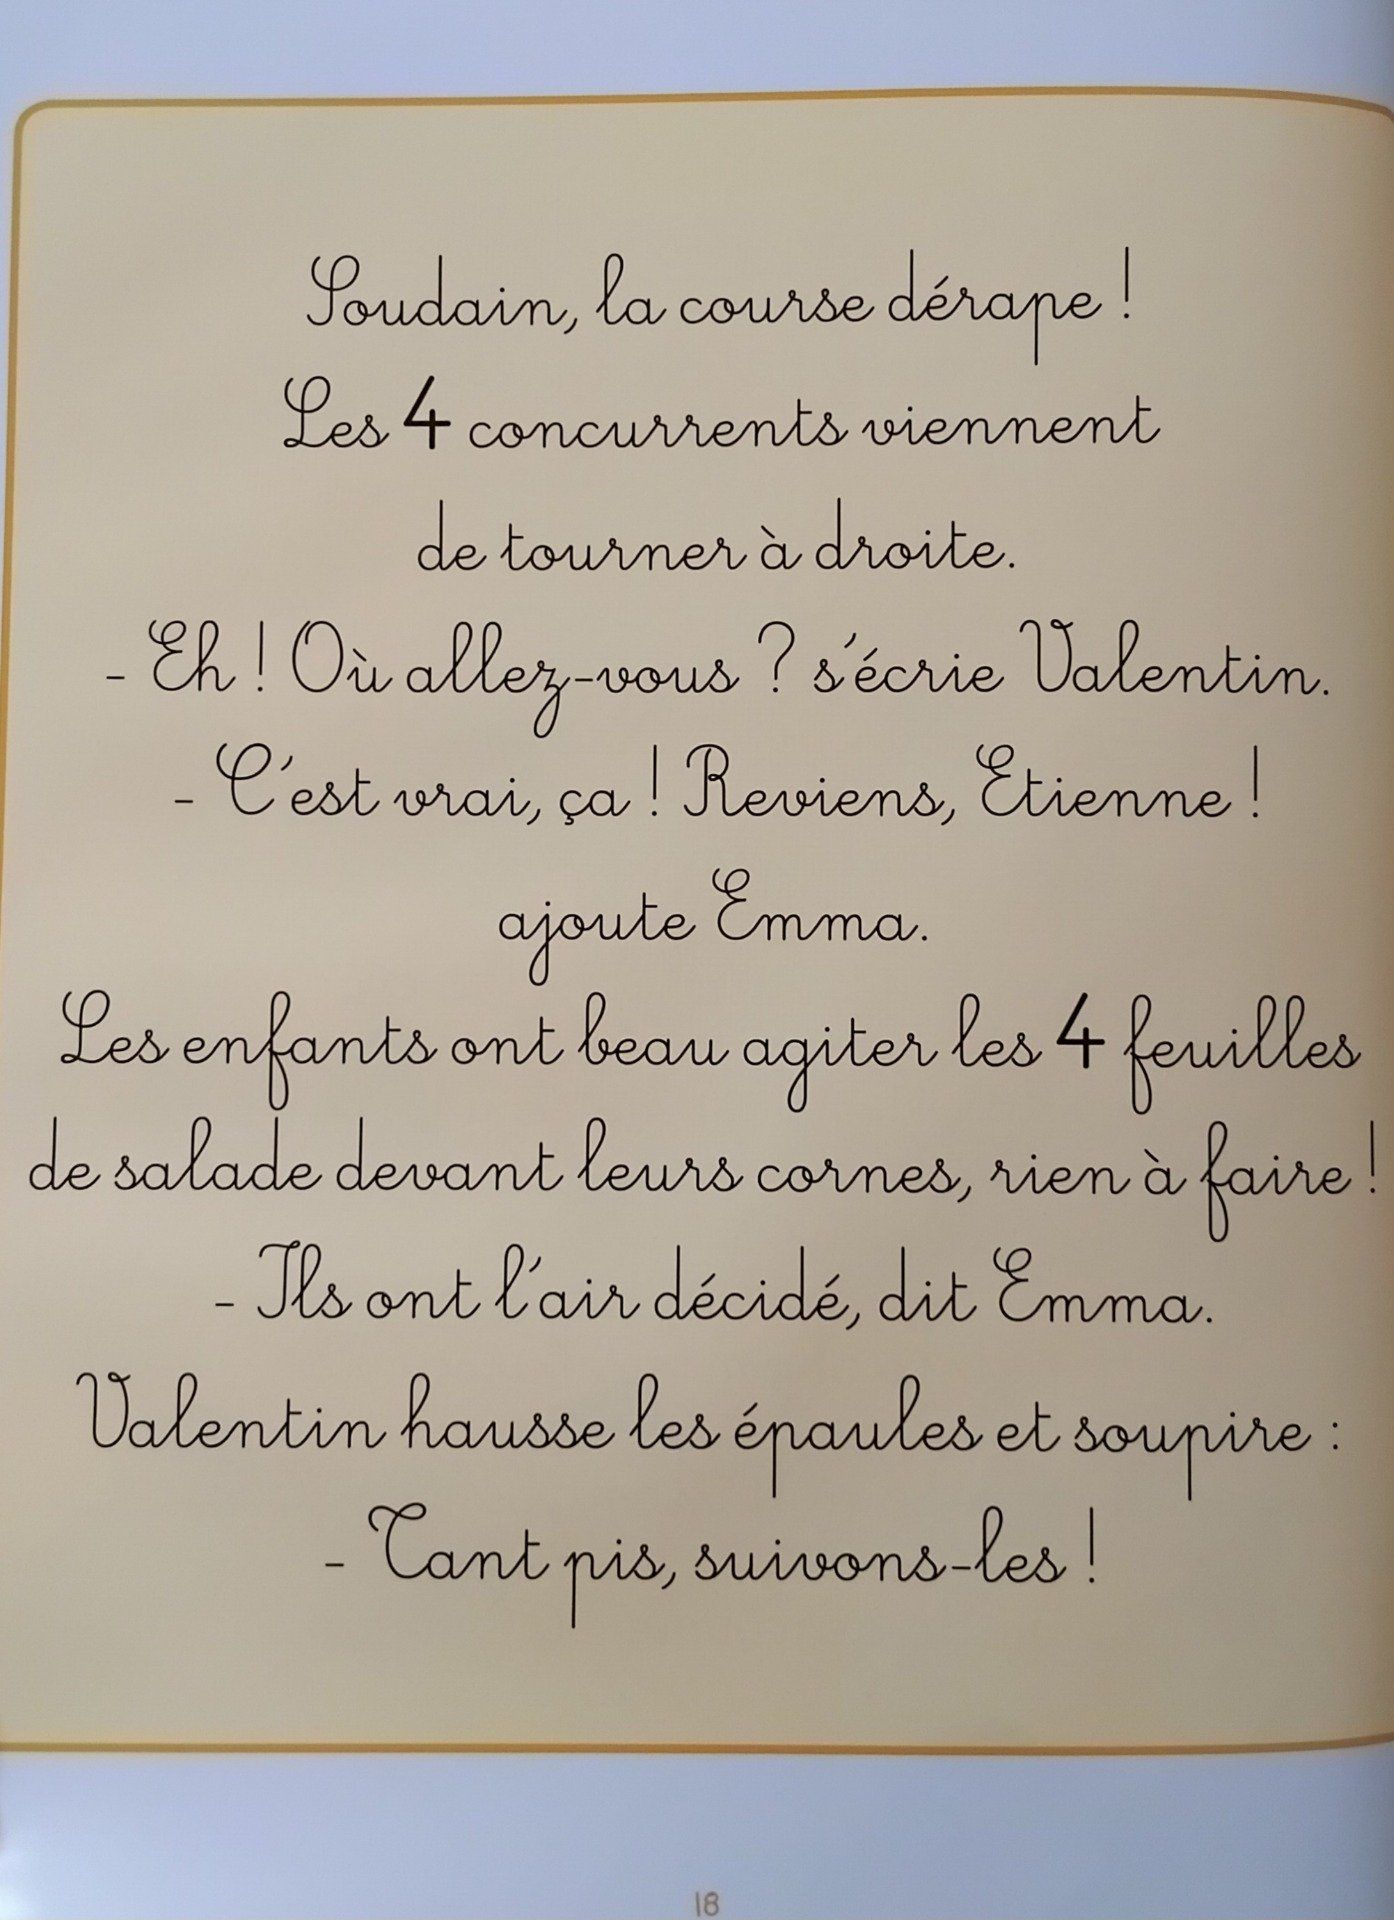 Soudain, la course dérape !
Les 4 concurrents viennent
de tourner à droite.
- Eh ! Où allez-vous ? s'écrie Valentin.
- C'est vrai, ça ! Reviens, Etienne !
ajoute Emma.
Les enfants ont beau agiter les 4 feuilles
de salade devant leurs cornes, rien à faire !
- Ils ont l'air décidé, dit Emma.
Valentin hausse les épaules et soupire :
- Tant pis, suivons-les !
18